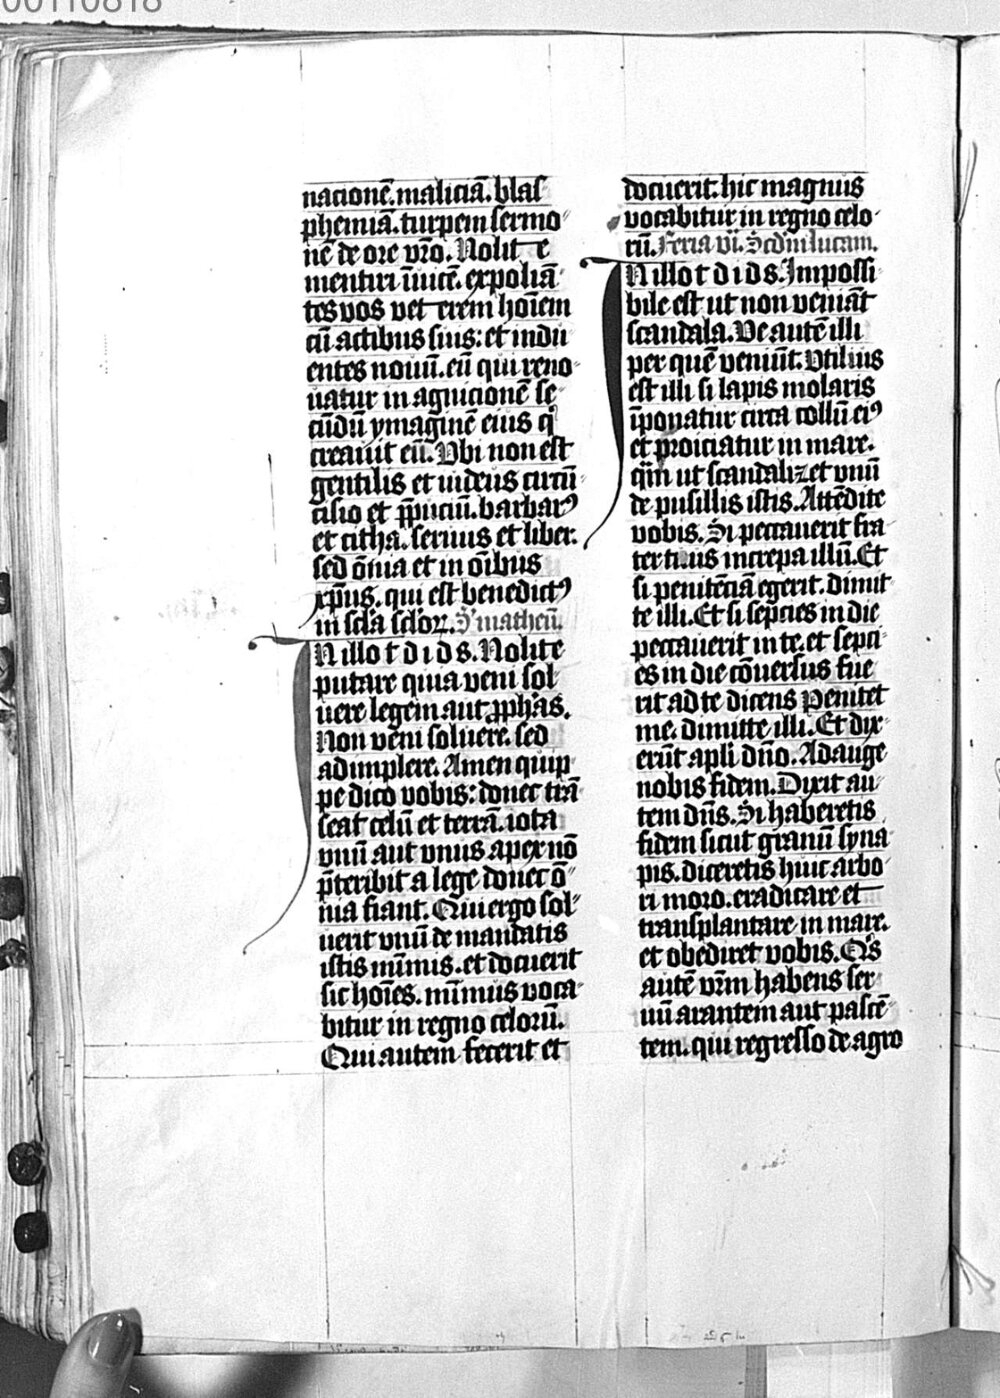 00110818
nacionē. maliciā. blas
phemiā. turpem sermo
nē de ore vr̄o. Nolite
mentiri īuicē. expoliā
tes vos veterem hoīem
cū actibus suis: et indu
entes nouū. eū qui reno
uatur in agnicionē se
cūdū ymaginē eius q̄
creauit eū. Vbi non est
gentilis et iudeus circū
cisio et p̄puciū. barbarꝰ
et citha. seruus et liber.
sed ōnia et in oībus
xp̄us. qui est benedictꝰ
in scl̄a scl̄oꝝ. S' matheū.
IN illo t d i d s. Nolite
putare quia veni sol
uere legem aut ꝓph̄as.
Non veni soluere. sed
adimplere. Amen quip
pe dico vobis: donec trā
seat celū et terrā. iota
vnū aut vnus apex nō
p̄teribit a lege donec ō
nia fiant. Qui ergo sol
uerit vnū de mandatis
istis minimis. et docuerit
sic hoīes. minimus voca
bitur in regno celorū.
Qui autem fecerit et
docuerit. hic magnus
vocabitur in regno celo
rū. Feria vi. Scd̄m lucam.
IN illo t d i d s. Impossi
bile est ut non veniāt
scandala. Ve autē illi
per quē veniūt. Vtilius
est illi si lapis molaris
īponatur circa collū eiꝰ
et proiciatur in mare.
qm̄ ut scandalizet vnū
de pusillis istis. Attēdite
vobis. Si peccauerit fra
ter tuus increpa illū. Et
si penitēciā egerit. dimit
te illi. Et si sepcies in die
peccauerit in te. et septi
es in die cōuersus fue
rit ad te dicens Penitet
me. dimitte illi. Et dix
erūt apl̄i dn̄o. Adauge
nobis fidem. Dixit au
tem dn̄s. Si haberetis
fidem sicut granū syna
pis. diceretis huic arbo
ri moro. eradicare et
transplantare in mare.
et obediret vobis. Q's
autē vr̄m habens ser
uū arantem aut pascē
tem. qui regresso de agro